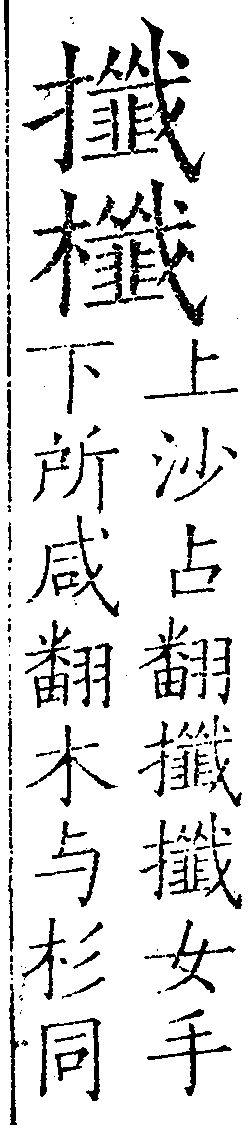 攕櫼
上沙占翻攕攕女手
下所咸翻木与杉同